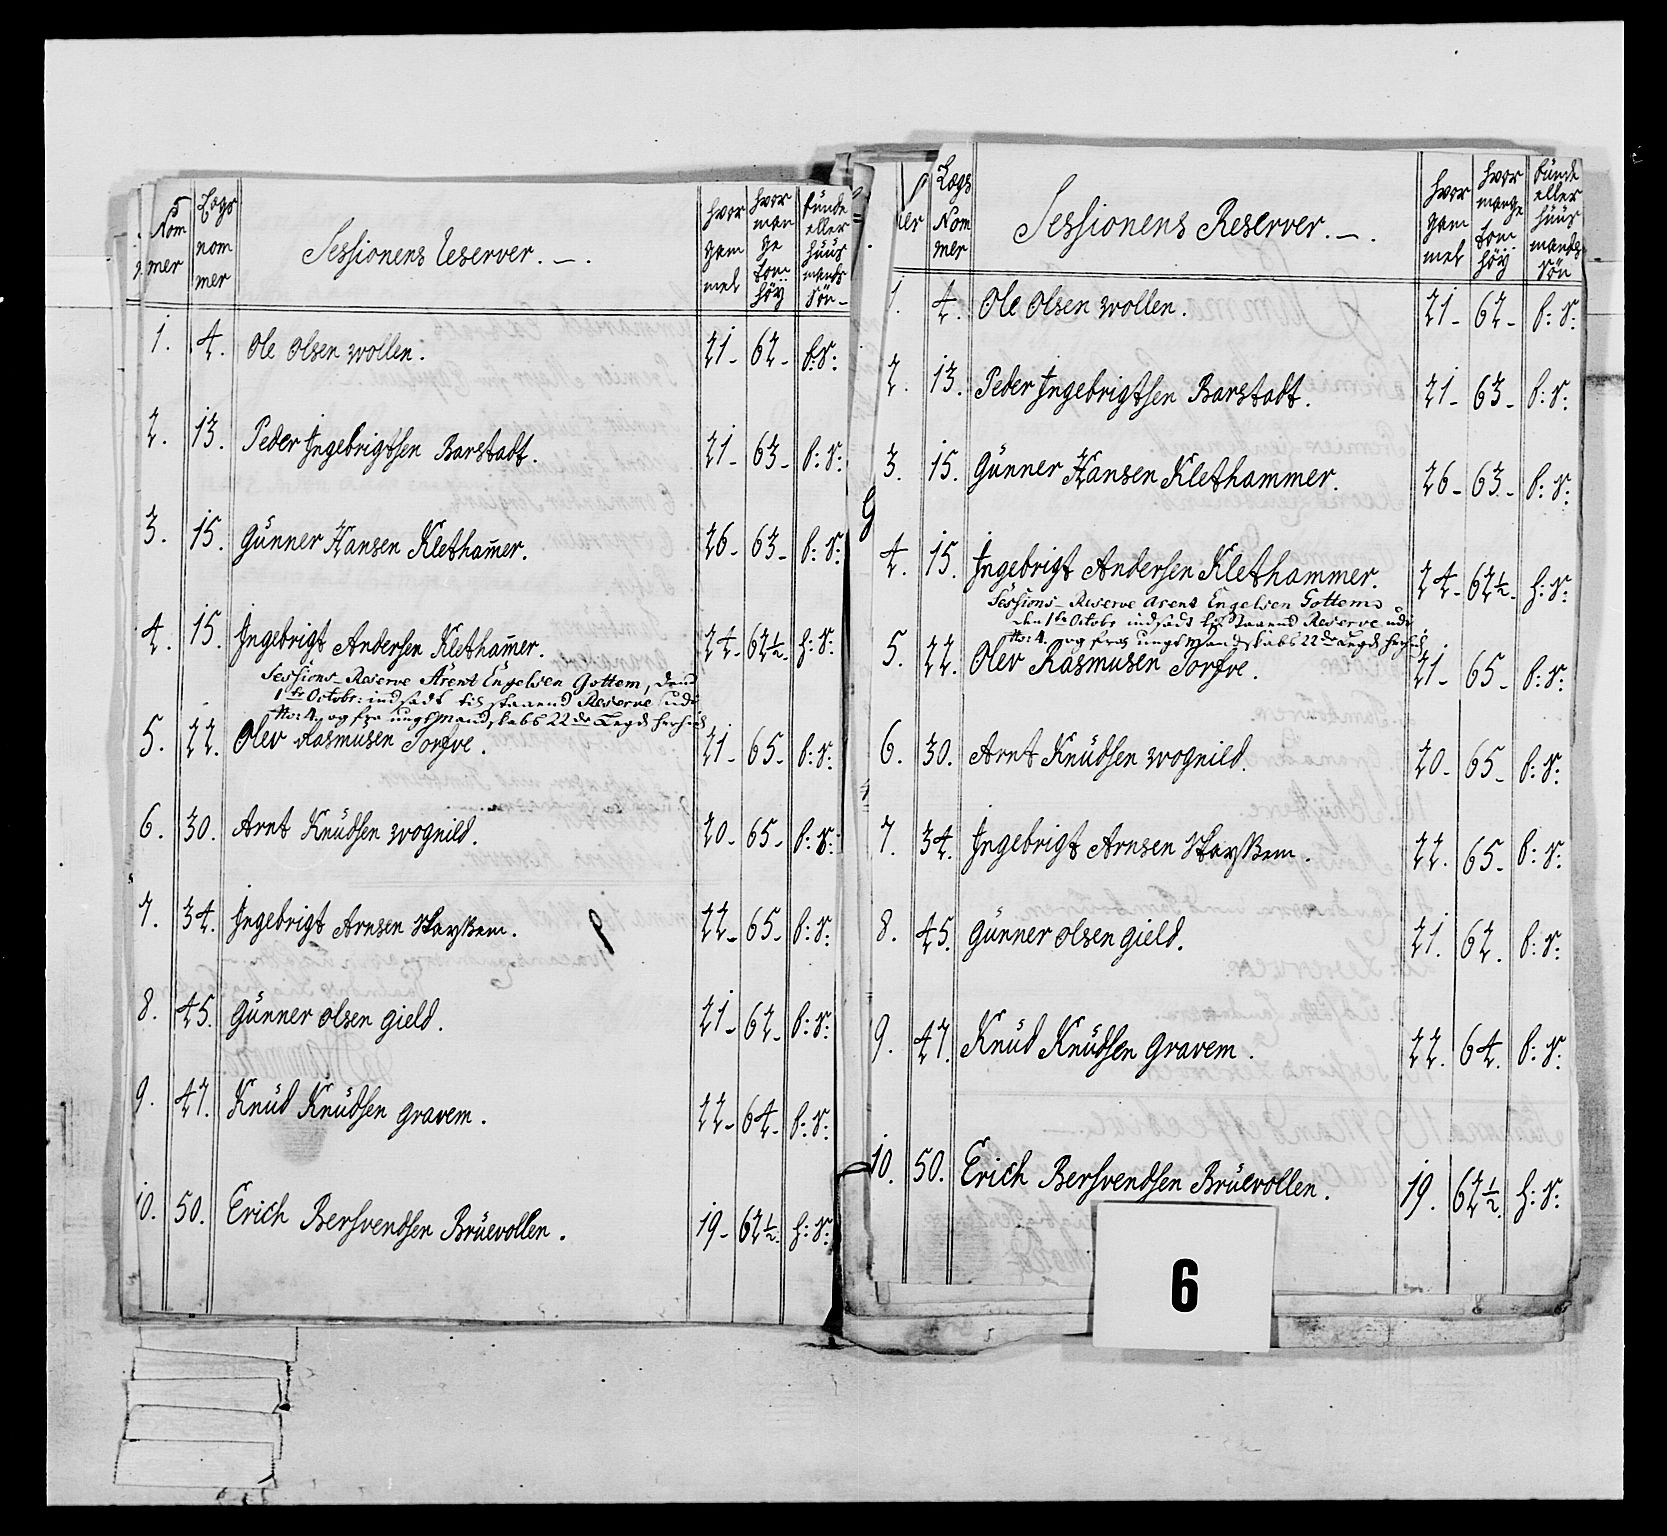 Nom mer | Legs nom mer | Sessionens Reserver. | hvor gam mel | hvor man ge tom höÿ | bunde eller huus mands Sön
1. 4. Ole Olsen Wollen. 21- 62- b: S:
2. 13. Peder Ingebrigtsen Barstadt. 21- 63- b: S:
3. 15. Gunner Hansen Klethamer. 26- 63- b: S:
4. 15. Ingebrigt Andersen Klethamer. 24- 62½- h: S:
Sessions-Reserve Arent Engelsen Gottem, den
1ste Octobr: indsadt til staaend Reserve udi
No: 4. og fra ungt Mandskabs 22de Legd hersid
5. 22. Olev Rasmusen Torfve. 21- 65- b: S:
6. 30. Arnt Knudsen Wognild. 20- 65- b: S:
7. 34. Ingebrigt Arnsen 22- 65- b: S:
8. 45. Gunner Olsen Gield. 21- 62- b: S:
9. 47. Knud Knudsen Gravem. 22- 64- b: S:
10. 50. Erich Bersvendsen Bruevollen. 19- 62½- h: S:
mer | Legs Nom mer | Sessionens Reserver. | hvor gam mel | hvor mange tom höÿ | bunde eller huus mands Sön
1. 4. Ole Olsen Wollen. 21- 62- b: S:
2. 13. Peder Ingebrigtsen Barstadt. 21- 63- b: S:
3. 15. Gunner Hansen Klethammer. 26- 63- b: S:
4. 15. Ingebrigt Andersen Klethammer. 24- 62½- h: S:
Sessions-Reserve Arent Engelsen Gottem
den 1ste Octobr indsadt til staaend Reserve udi
No: 4. og fra ungt Mandskabs 22de Legd hersid
5. 22. Olev Rasmusen Torfve. 21- 65- b: S:
6. 30. Arnt Knudsen Wognild. 20- 65- b: S:
7. 34. Ingebrigt Arnsen 22. 65- b: S:
8. 45. Gunner Olsen Gield. 21. 62. b: S:
9. 47. Knud Knudsen Gravem. 22. 64. b: S:
10. 50. Erich Bersvendsen Bruevollen. 19. 62½. h: S:
6